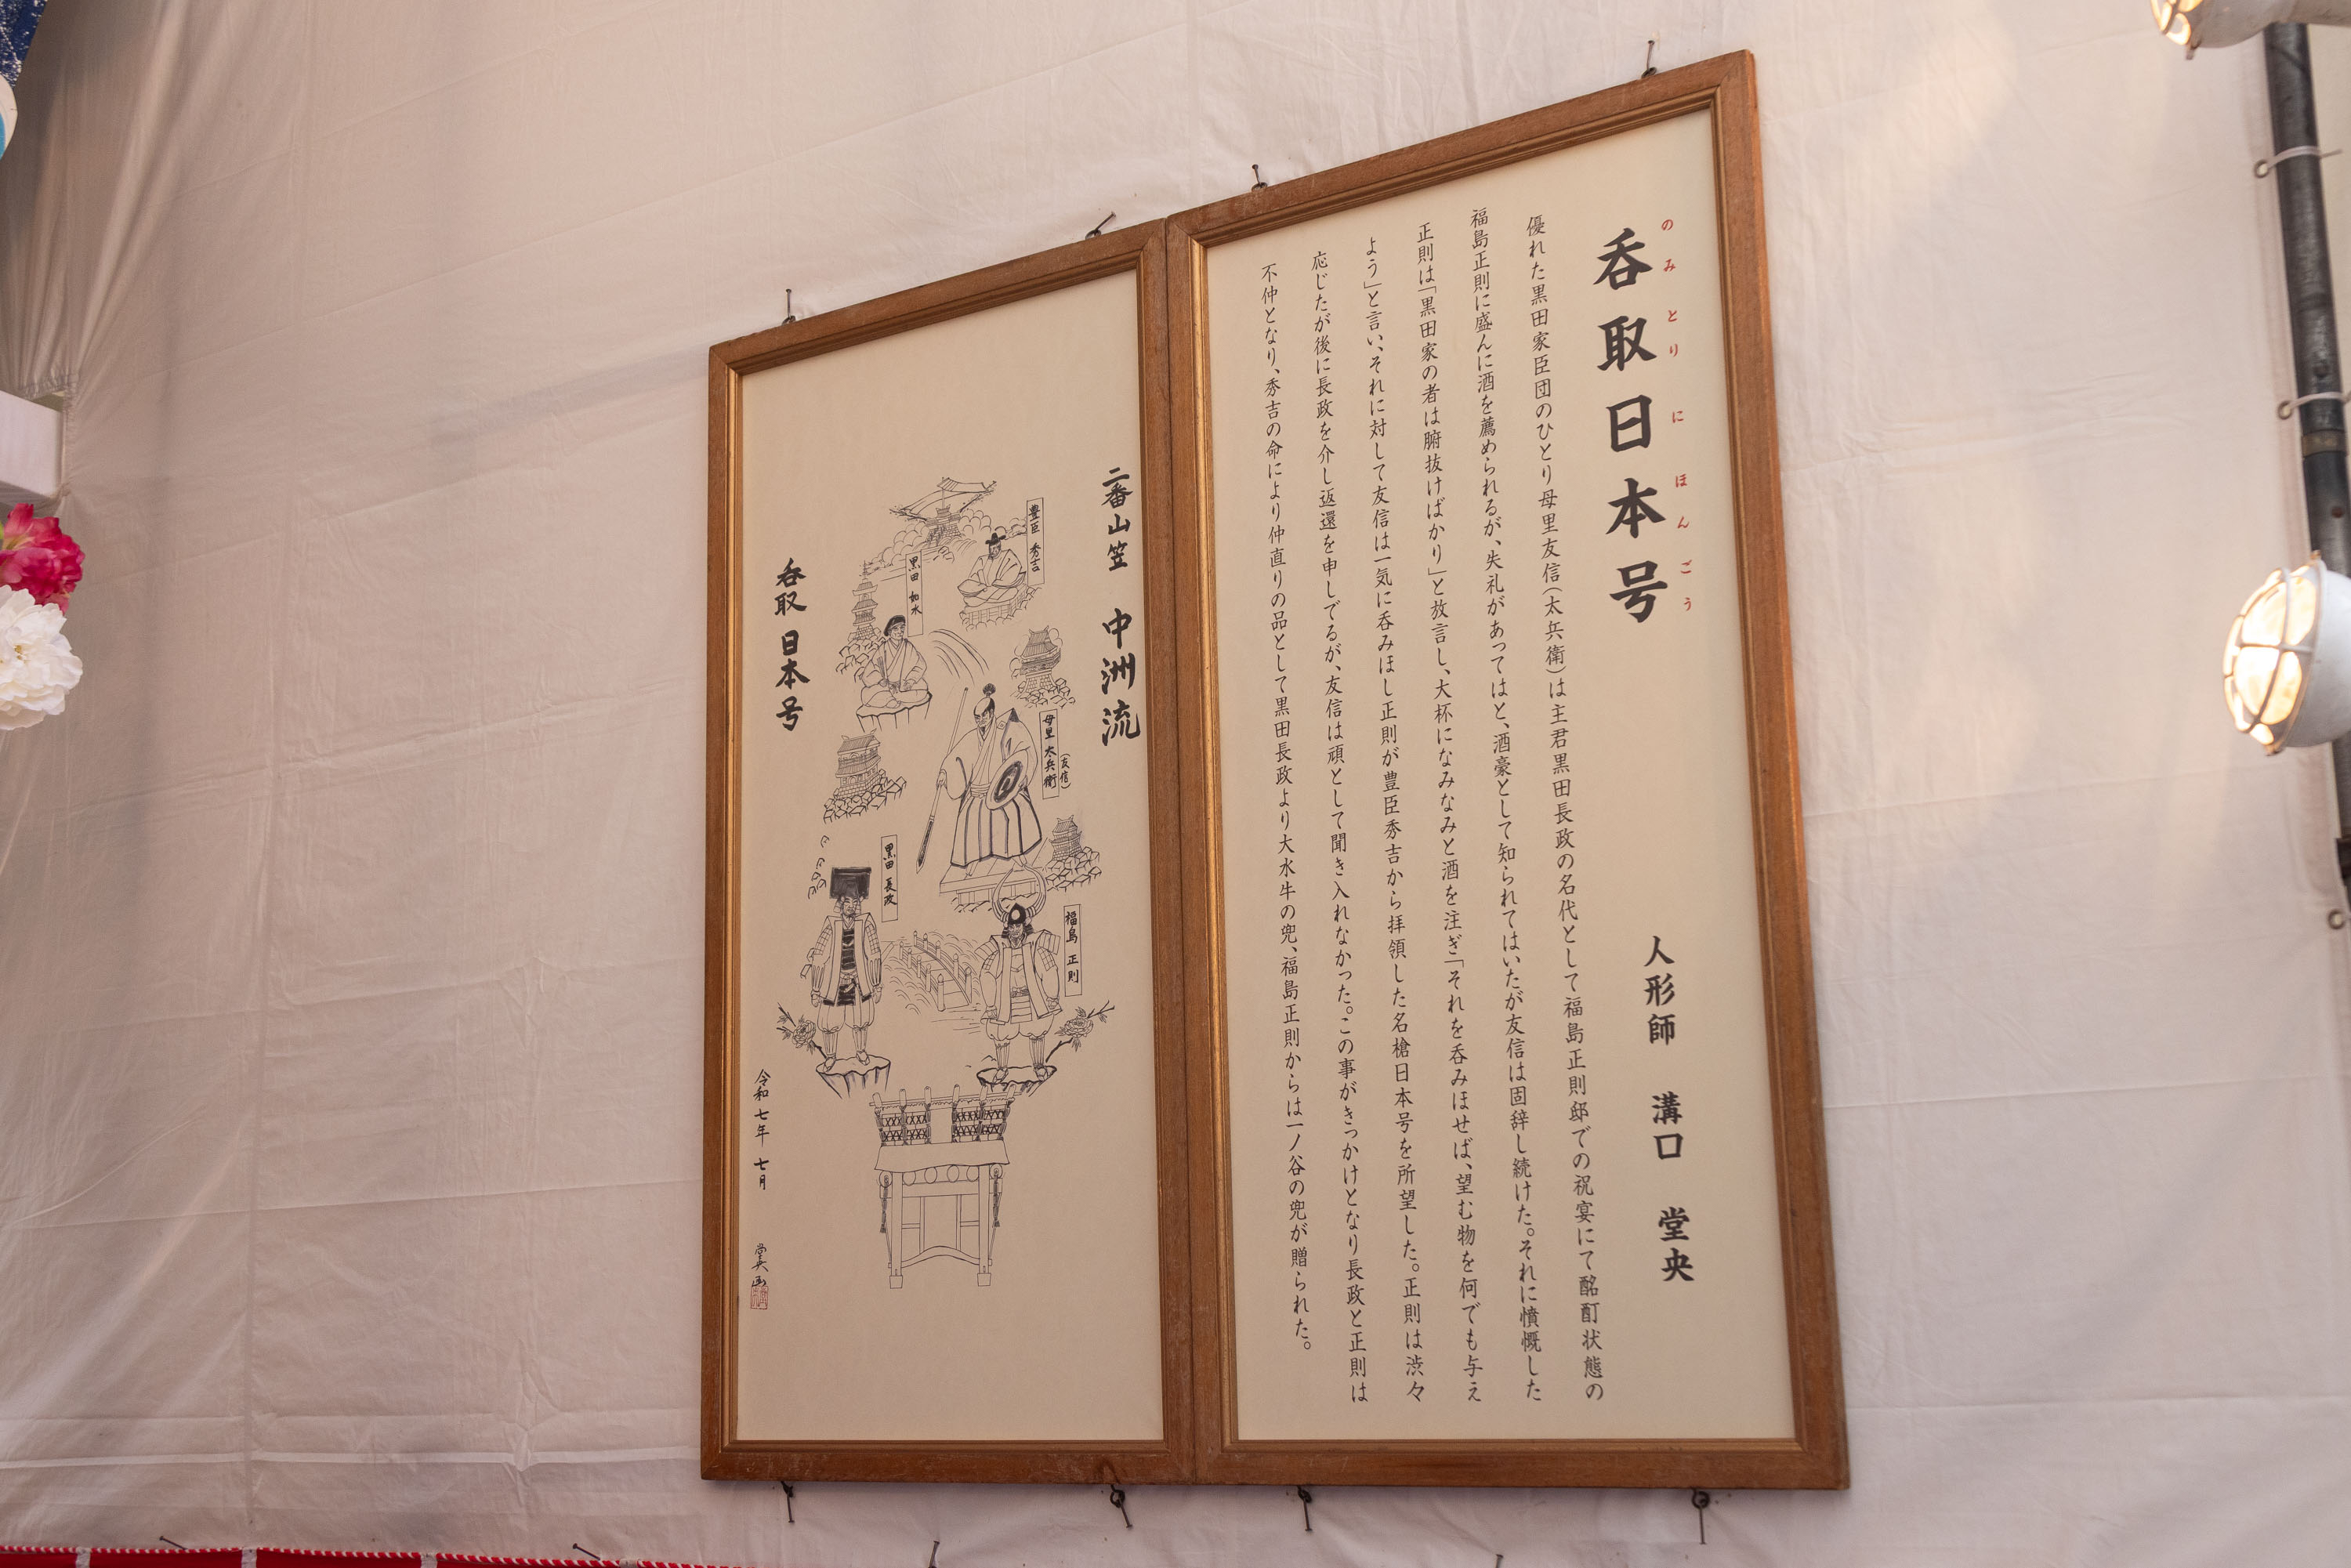 呑取日本号
のみとりにほんごう
人形師 溝口 堂央
優れた黒田家臣団のひとり母里友信(太兵衛)は主君黒田長政の名代として福島正則邸での祝宴にて酩酊状態の
福島正則に盛んに酒を薦められるが、失礼があってはと、酒豪として知られてはいたが友信は固辞し続けた。それに憤慨した
正則は「黒田家の者は腑抜けばかり」と放言し、大杯になみなみと酒を注ぎ「それを呑みほせば、望む物を何でも与え
よう」と言い、それに対して友信は一気に呑みほし正則が豊臣秀吉から拝領した名槍日本号を所望した。正則は渋々
応じたが後に長政を介し返還を申しでるが、友信は頑として聞き入れなかった。この事がきっかけとなり長政と正則は
不仲となり、秀吉の命により仲直りの品として黒田長政より大水牛の兜、福島正則からは一ノ谷の兜が贈られた。
二番山笠 中洲流
豊臣 秀吉
黒田 如水
母里 太兵衛
(友信)
黒田 長政
福島 正則
呑取 日本号
令和七年 七月
堂央 画